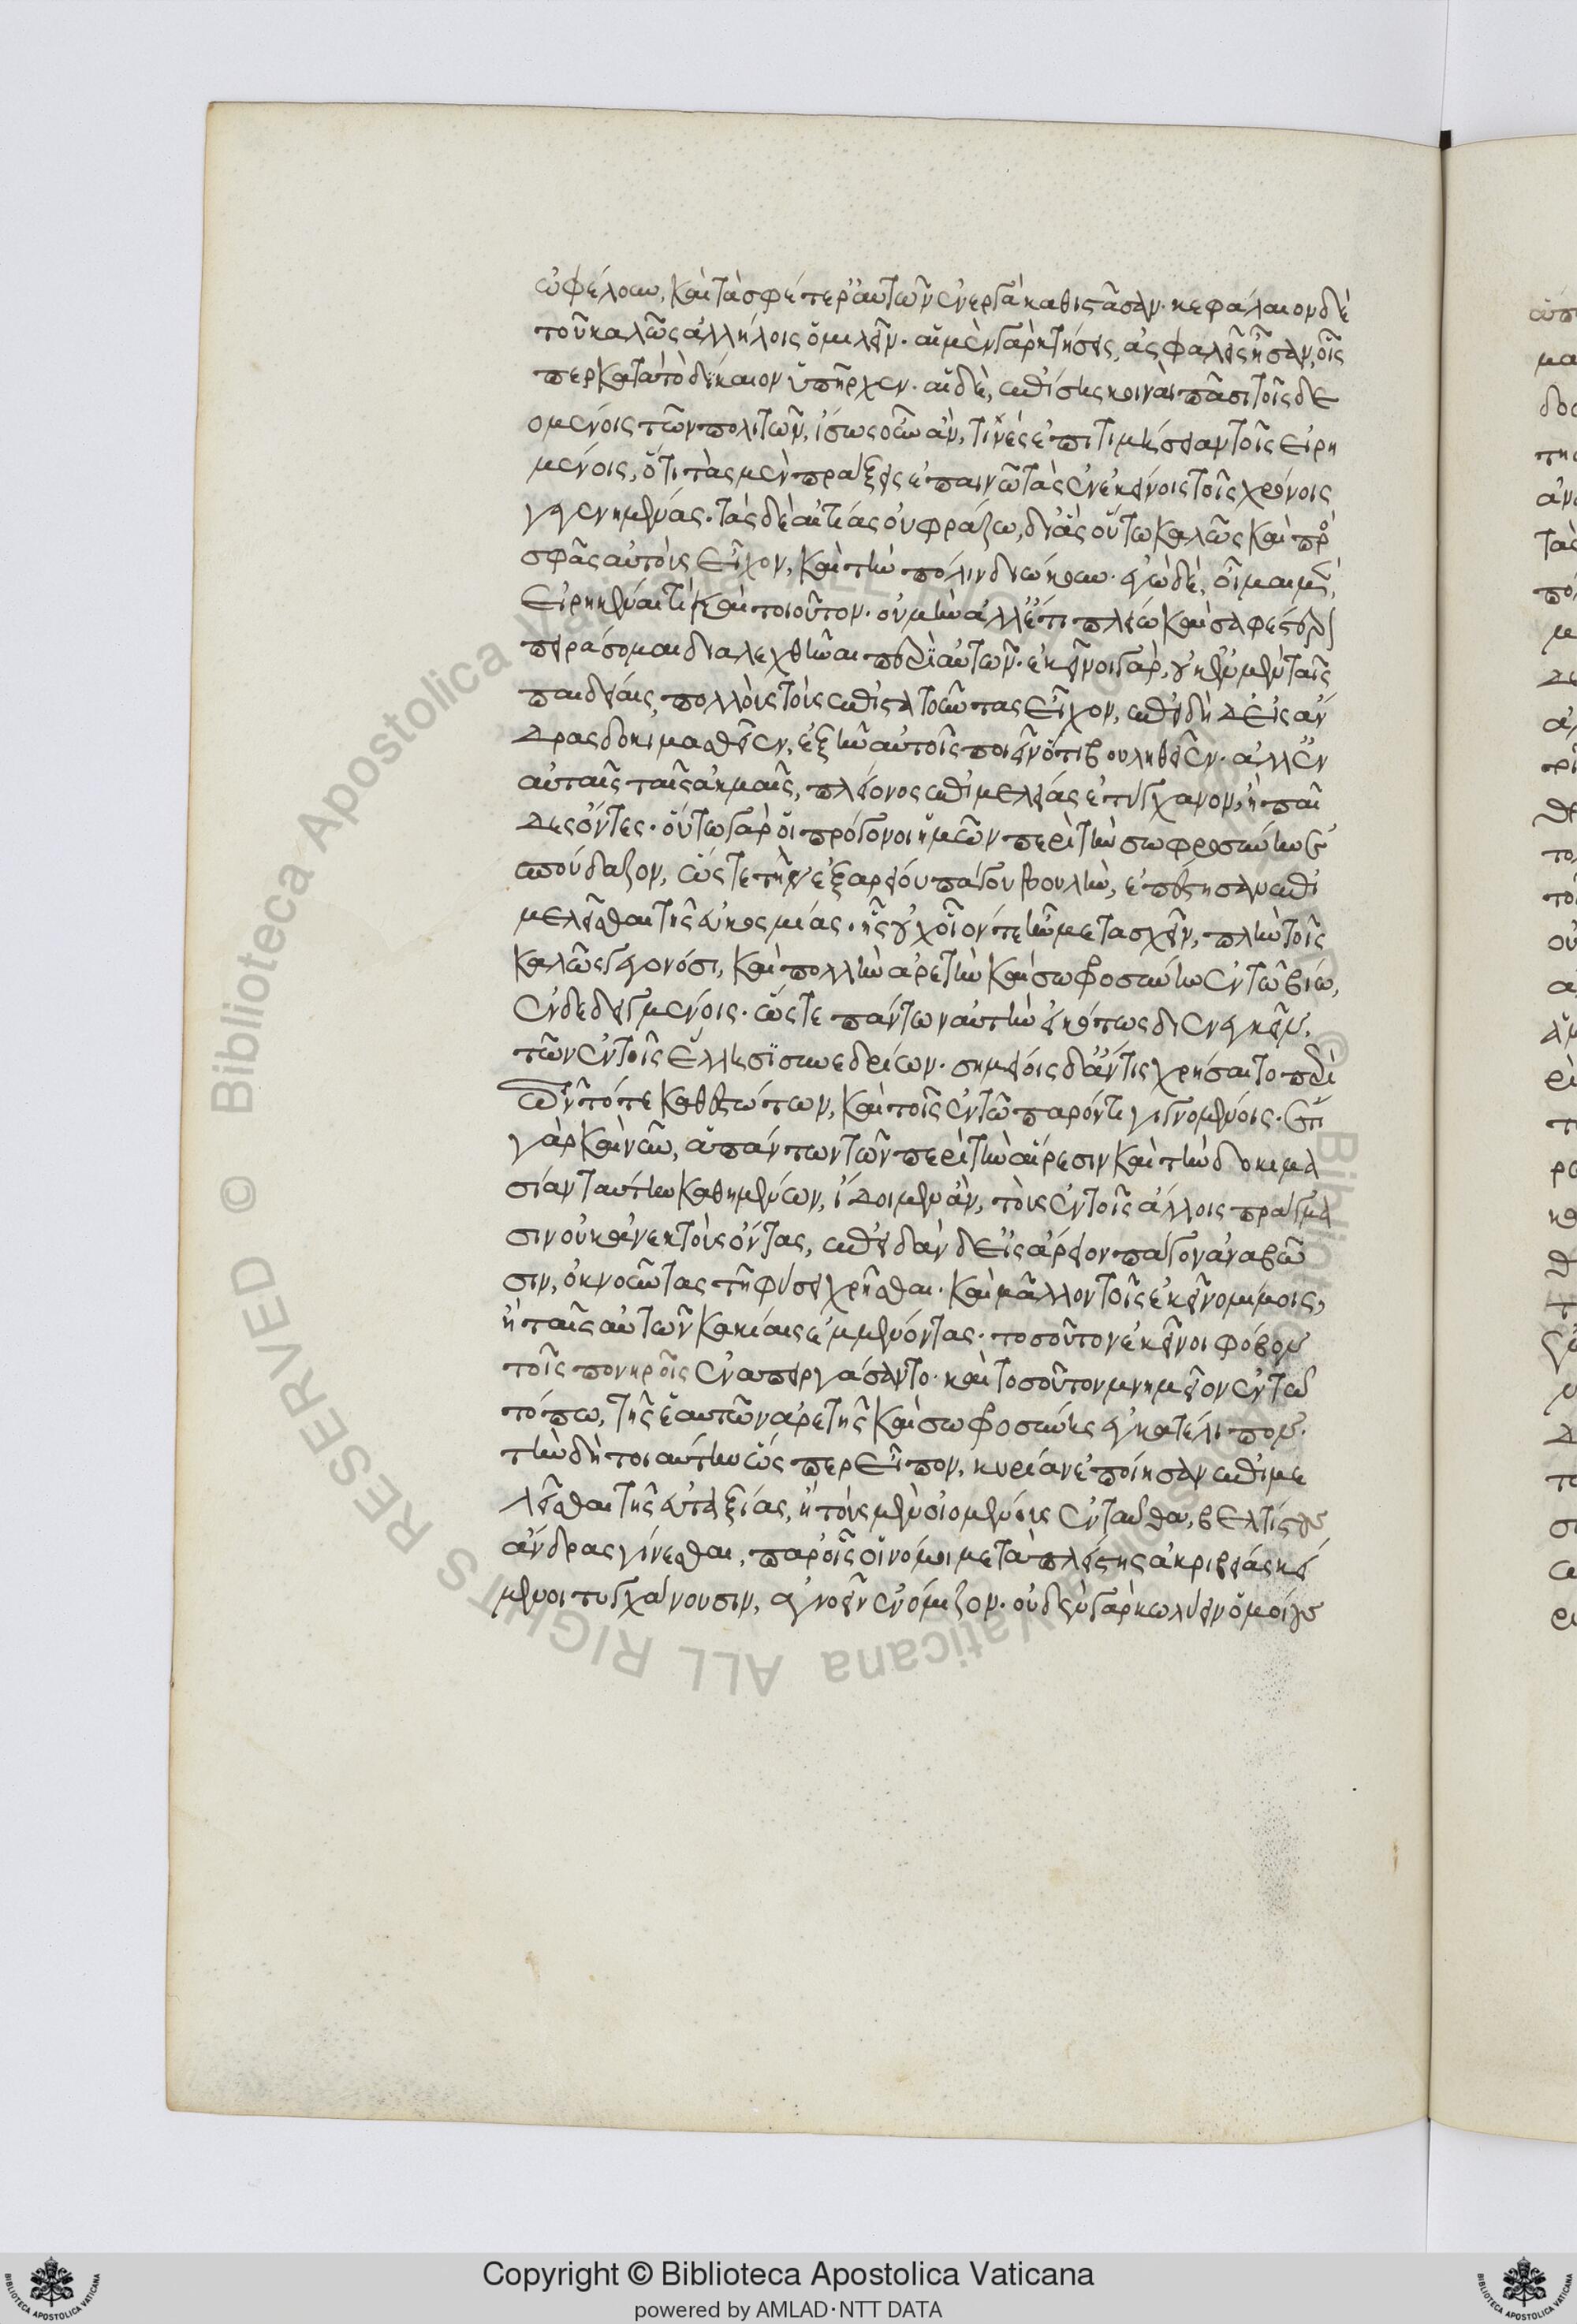 ὠφέλουν, καὶ τὰ σφέτερ' αὐτῶν ἐνεργὰ καθίστασαν. κεφάλαιον δὲ
τοῦ καλῶς ἀλλήλοις ὁμιλεῖν. αἱ μὲν γὰρ κτήσεις, ἀσφαλεῖς ἦσαν, οἷς
περ κατὰ τὸ δίκαιον ὑπῆρχεν. αἱ δὲ, χρήσεις κοιναὶ πᾶσι τοῖς δε
ομένοις τῶν πολιτῶν, ἴσως οὖν ἂν, τινὲς ἐπιτιμήσειαν τοῖς εἰρη
μένοις, ὅτι τὰς μὲν πράξεις ἐπαινῶ τὰς ἐν ἐκείνοις τοῖς χρόνοις
γεγενημένας. τὰς δὲ αἰτίας οὐ φράζω, δι' ἃς οὕτω καλῶς καὶ πρὸ
σφᾶς αὐτοὺς εἶχον, καὶ τὴν πόλιν διώκουν. ἐγὼ δὲ, οἶμαι μὲν
εἰρηκέναι τὶ καὶ τοιοῦτον. οὐ μὴν ἀλλ' ἔτι πλείω καὶ σαφέστερ
πειράσομαι διαλεχθῆναι περὶ αὐτῶν. ἐκεῖνοι γὰρ, οὐκ ἐν μὲν ταῖς
παιδείαις, πολλοὺς τοὺς ἐπιστατοῦντας εἶχον, ἐπειδὴ δ' εἰς ἄν
δρας δοκιμασθεῖεν, ἐξῆν αὐτοῖς ποιεῖν ὅτι βουληθεῖεν. ἀλλ' ἐν
αὐταῖς ταῖς ἀκμαῖς, πλείονος ἐπιμελείας ἐτύγχανον, ἢ παῖ
δες ὄντες. οὕτω γὰρ οἱ πρόγονοι ἡμῶν περὶ τὴν σωφροσύνην ἐ
σπούδαζον, ὥστε τὴν ἐξ ἀρείου πάγου βουλὴν, ἐπέστησαν ἐπι
μελεῖσθαι τῆς εὐκοσμίας. ἧς οὐχ οἷόν τ' ἦν μετασχεῖν, πλὴν τοῖς
καλῶς γεγονόσι, καὶ πολλὴν ἀρετὴν καὶ σωφροσύνην ἐν τῷ βίῳ,
ἐνδεδειγμένοις. ὥστε πάντων αὐτὴν εἰκότως διενεγκεῖν.
τῶν ἐν τοῖς ἕλλησι συνεδρίων. σημείοις δ' ἄν τις χρήσαιτο περὶ
τῶν τότε καθεστώτων, καὶ τοῖς ἐν τῷ παρόντι γιγνομένοις. ἔτι
γὰρ καὶ νῦν, ἁπάντων τῶν περὶ τὴν αἵρεσιν καὶ τὴν δοκιμα
σίαν ταύτην καθημένων, ἴδοιμεν ἂν, τοὺς ἐν τοῖς ἄλλοις πράγμα
σιν οὐκ ἀνεκτοὺς ὄντας, ἐπειδὰν δ' εἰς ἄρειον πάγον ἀναβῶ
σιν, ὀκνοῦντας τῇ φύσει χρῆσθαι. καὶ μᾶλλον τοῖς ἐκεῖ νομίμοις,
ἢ ταῖς αὑτῶν κακίαις ἐμμένοντας. τοσοῦτον ἐκεῖνοι φόβον
τοῖς πονηροῖς ἐναπειργάσαντο. καὶ τοσοῦτον μνημεῖον ἐν τῷ
τόπῳ, τῆς ἑαυτῶν ἀρετῆς καὶ σωφροσύνης ἐγκατέλιπον.
τὴν δὴ τοιαύτην ὥσπερ εἶπον, κυρίαν ἐποίησαν ἐπιμε
λεῖσθαι τῆς εὐταξίας, ἣ τοὺς μὲν οἰομένους ἐνταῦθα, βελτίστους
ἄνδρας γίνεσθαι, παρ' οἷς οἱ νόμοι μετὰ πλείστης ἀκριβείας κεί
μενοι τυγχάνουσιν, ἀγνοεῖν ἐνόμιζον. οὐδὲν γὰρ κωλύειν ὁμοίους
Copyright © Biblioteca Apostolica Vaticana
powered by AMLAD·NTT DATA